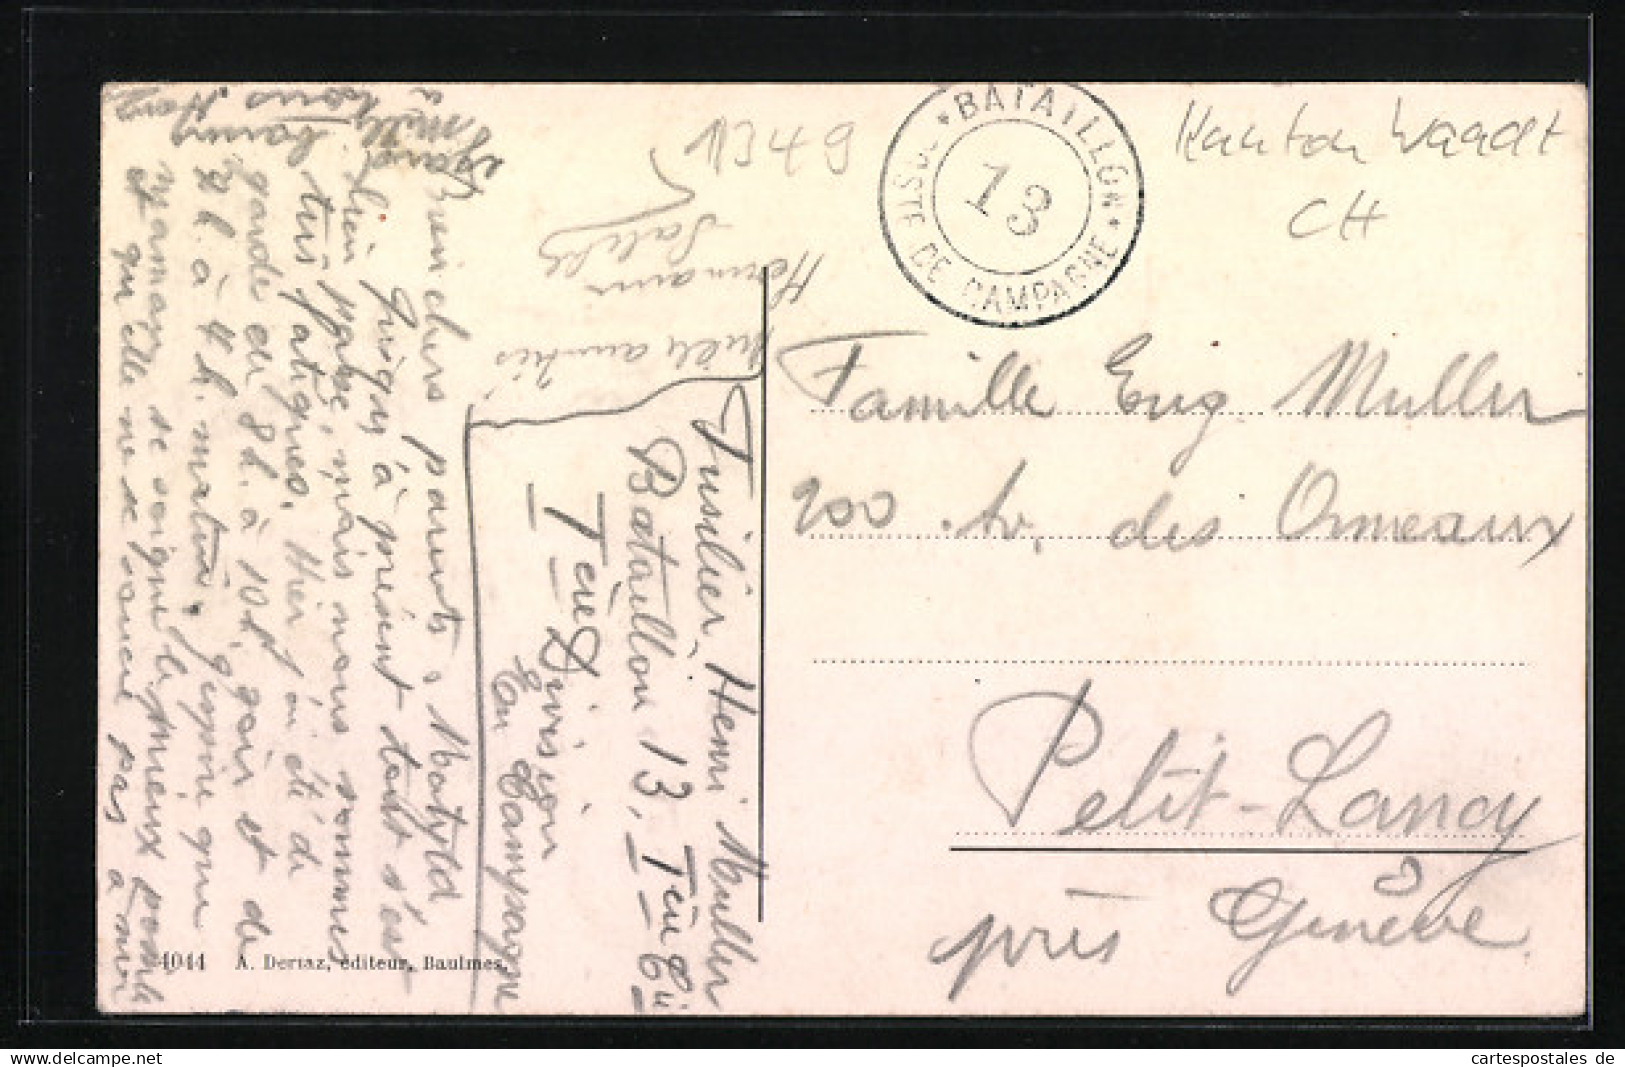 Kanton Waadt
CH
1349
* BATAILLON *
13
POSTE DE CAMPAGNE
Famille Eug Muller
200 Av. des Ormeaux
Petit-Lancy
près Genève
Fusilier, Henri Muller
Bataillon 13, Ière Cie
Ière Division
En Campagne
Bien chers parents, Matyld
jusqu'à présent tout s'est
bien passé, mais nous sommes
très fatigués. Hier j'ai été de
garde de 8 h. à 10 h. soir et de
2 h. à 4 h. matin. j'espère que
Maman se soigne le mieux possible
et qu'elle ne se soucie pas à moi
Hermann
4044 A. Deriaz, éditeur, Baulmes.
cartespostales de